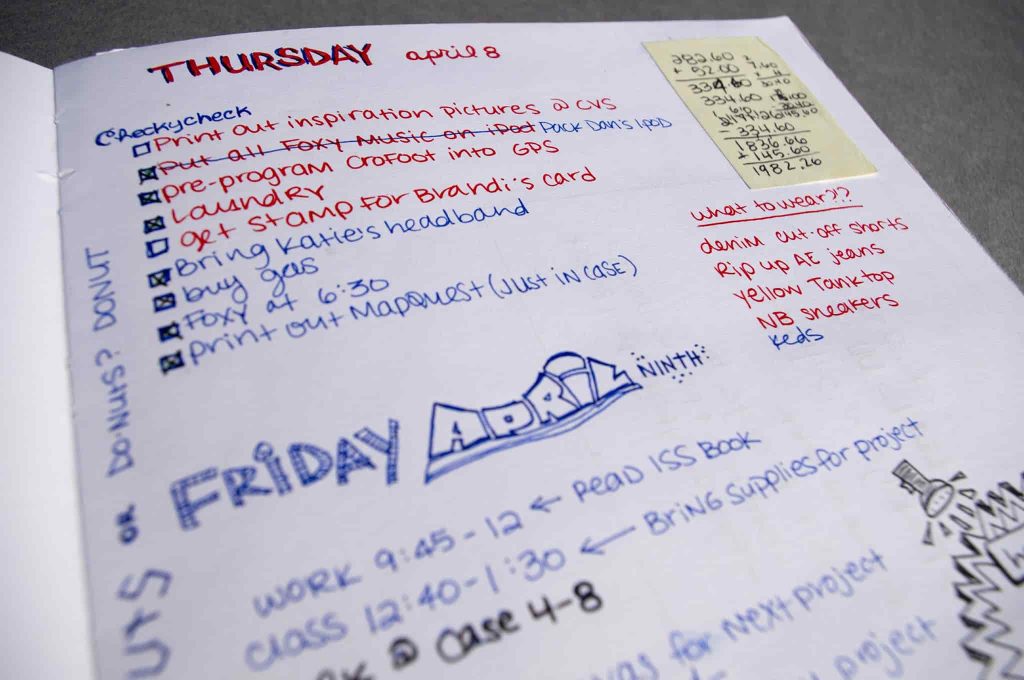 THURSDAY april 8
checkycheck
Print out inspiration pictures @ CVS
Put all Foxy Music on iPod Pack Dan's ipod
pre-program Crofoot into GPS
Laundry
get stamp for Brandi's card
Bring Katie's headband
buy gas
Foxy at 6:30
print out MapQuest (just in case)
282.60
+ 52.00
334.60
334.60
- 334.60
1836.66
+ 145.60
1982.26
what to wear??
denim cut-off shorts
Rip up AE jeans
yellow Tanktop
NB sneakers
Keds
OR DO-NUTS? DONUT
FRIDAY APRIL NINTH
WORK 9:45-12 ← READ ISS BOOK
CLASS 12:40-1:30 ← BRING supplies for project
@ Case 4-8
for Next project
project